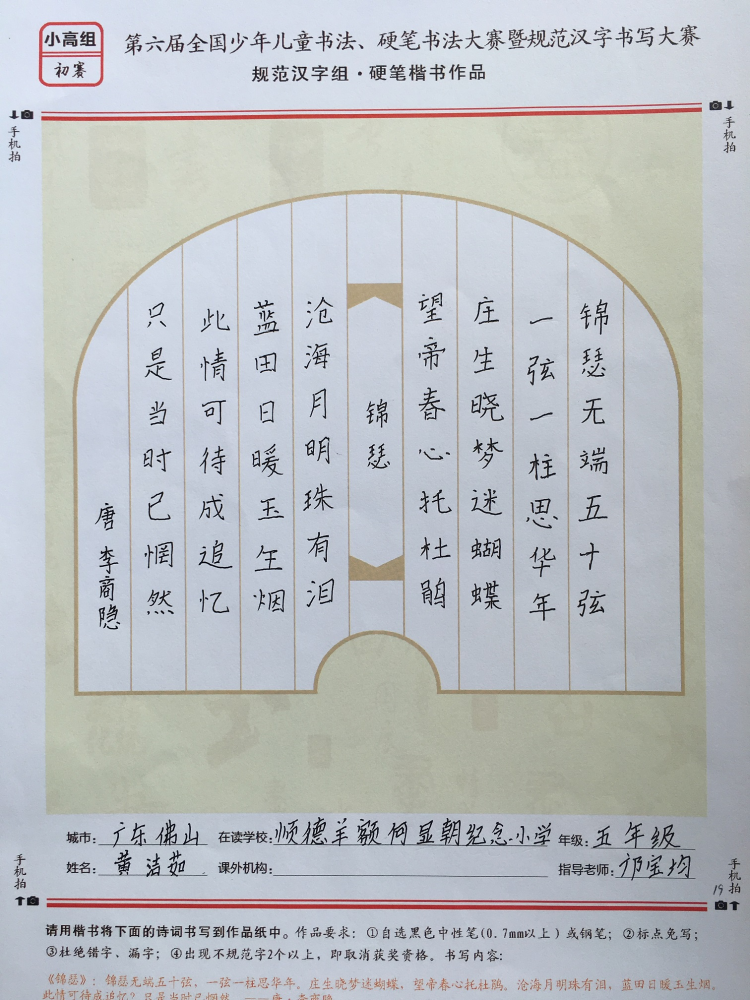 小高组
初赛
第六届全国少年儿童书法、硬笔书法大赛暨规范汉字书写大赛
规范汉字组·硬笔楷书作品
手机拍
手机拍
锦瑟无端五十弦
一弦一柱思华年
庄生晓梦迷蝴蝶
望帝春心托杜鹃
锦瑟
沧海月明珠有泪
蓝田日暖玉生烟
此情可待成追忆
只是当时已惘然
唐 李商隐
城市: 广东佛山 在读学校: 顺德羊额何显朝纪念小学 年级: 五年级
姓名: 黄洁茹 课外机构: 指导老师: 邝宝均
手机拍
手机拍
19
请用楷书将下面的诗词书写到作品纸中。作品要求:①自选黑色中性笔(0.7mm以上)或钢笔;②标点免写;
③杜绝错字、漏字;④出现不规范字2个以上,即取消获奖资格。书写内容:
《锦瑟》:锦瑟无端五十弦,一弦一柱思华年。庄生晓梦迷蝴蝶,望帝春心托杜鹃。沧海月明珠有泪,蓝田日暖玉生烟。
此情可待成追忆?只是当时已惘然。——唐·李商隐